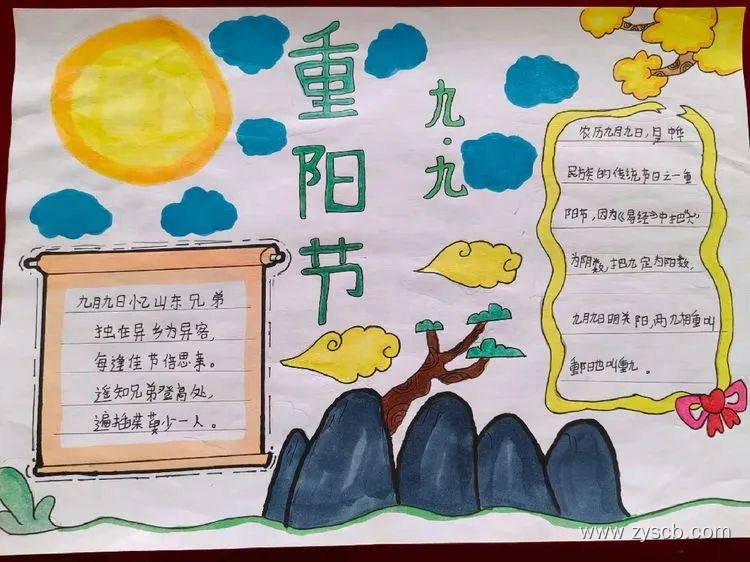 重阳节
九·九
九月九日忆山东兄弟
独在异乡为异客,
每逢佳节倍思亲。
遥知兄弟登高处,
遍插茱萸少一人。
农历九月九日,是中华
民族的传统节日之一重
阳节,因为《易经》中把"六"
为阴数,把九定为阳数,
九月九日明关阳,两九相重叫
重阳也叫重九。
www.zyscb.com